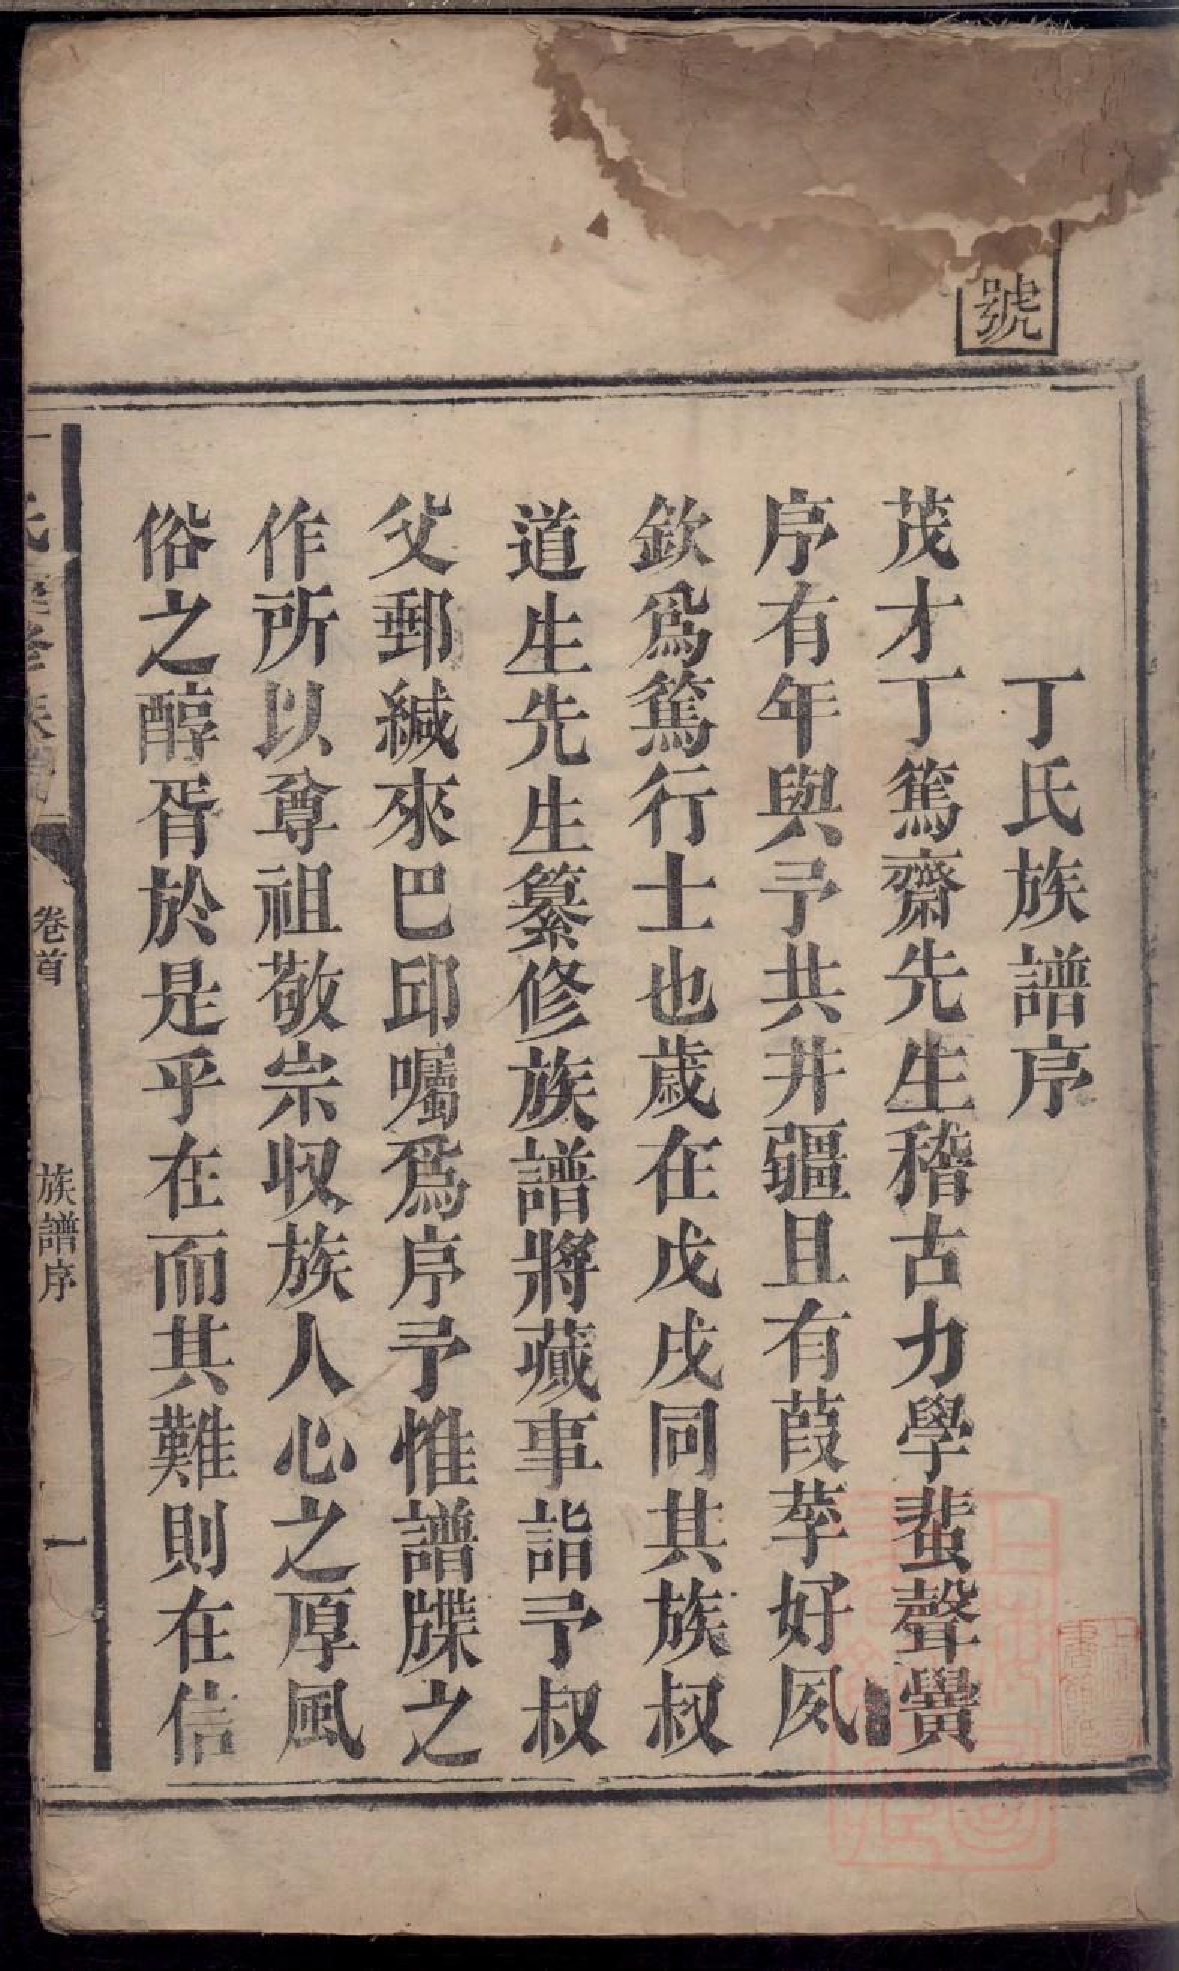 號
丁氏族譜序
茂才丁篤齋先生稽古力學蜚聲黌
序有年與予共井疆且有葭莩好夙
欽爲篤行士也歲在戊戌同其族叔
道生先生纂修族譜將蕆事詣予叔
父郵緘來巴邱囑爲序予惟譜牒之
作所以尊祖敬宗収族人心之厚風
俗之醇胥於是乎在而其難則在信
卷首
族譜序
一